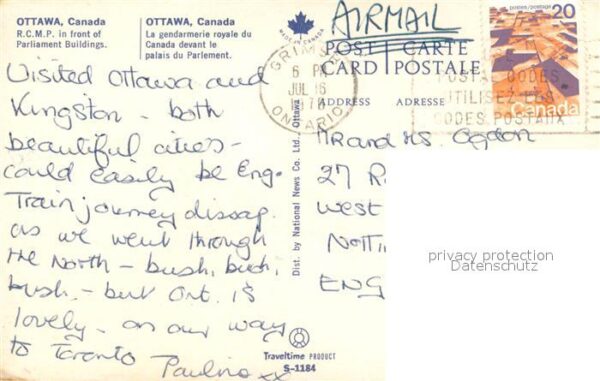 OTTAWA, Canada
R.C.M.P. in front of
Parliament Buildings.
OTTAWA, Canada
La gendarmerie royale du
Canada devant le
palais du Parlement.
MADE IN CANADA
AIRMAIL
POST CARTE
CARD POSTALE
ADDRESS ADRESSE
6 PM
JUL 16
ONTARIO
postes/postage
20
Canada
POSTAL CODES
UTILISEZ LES
CODES POSTAUX
Visited Ottawa and
Kingston - both
beautiful cities -
could easily be Eng.
Train journey dissap.
as we went through
the North - bush, bush,
bush, - but Ont. is
lovely - on our way
to Toronto
Pauline xx
Mr and Mrs. Ogdon
27
West
NOTTI
ENG
Dist. by National News Co. Ltd., Ottawa
Traveltime PRODUCT
S-1184
privacy protection
Datenschutz